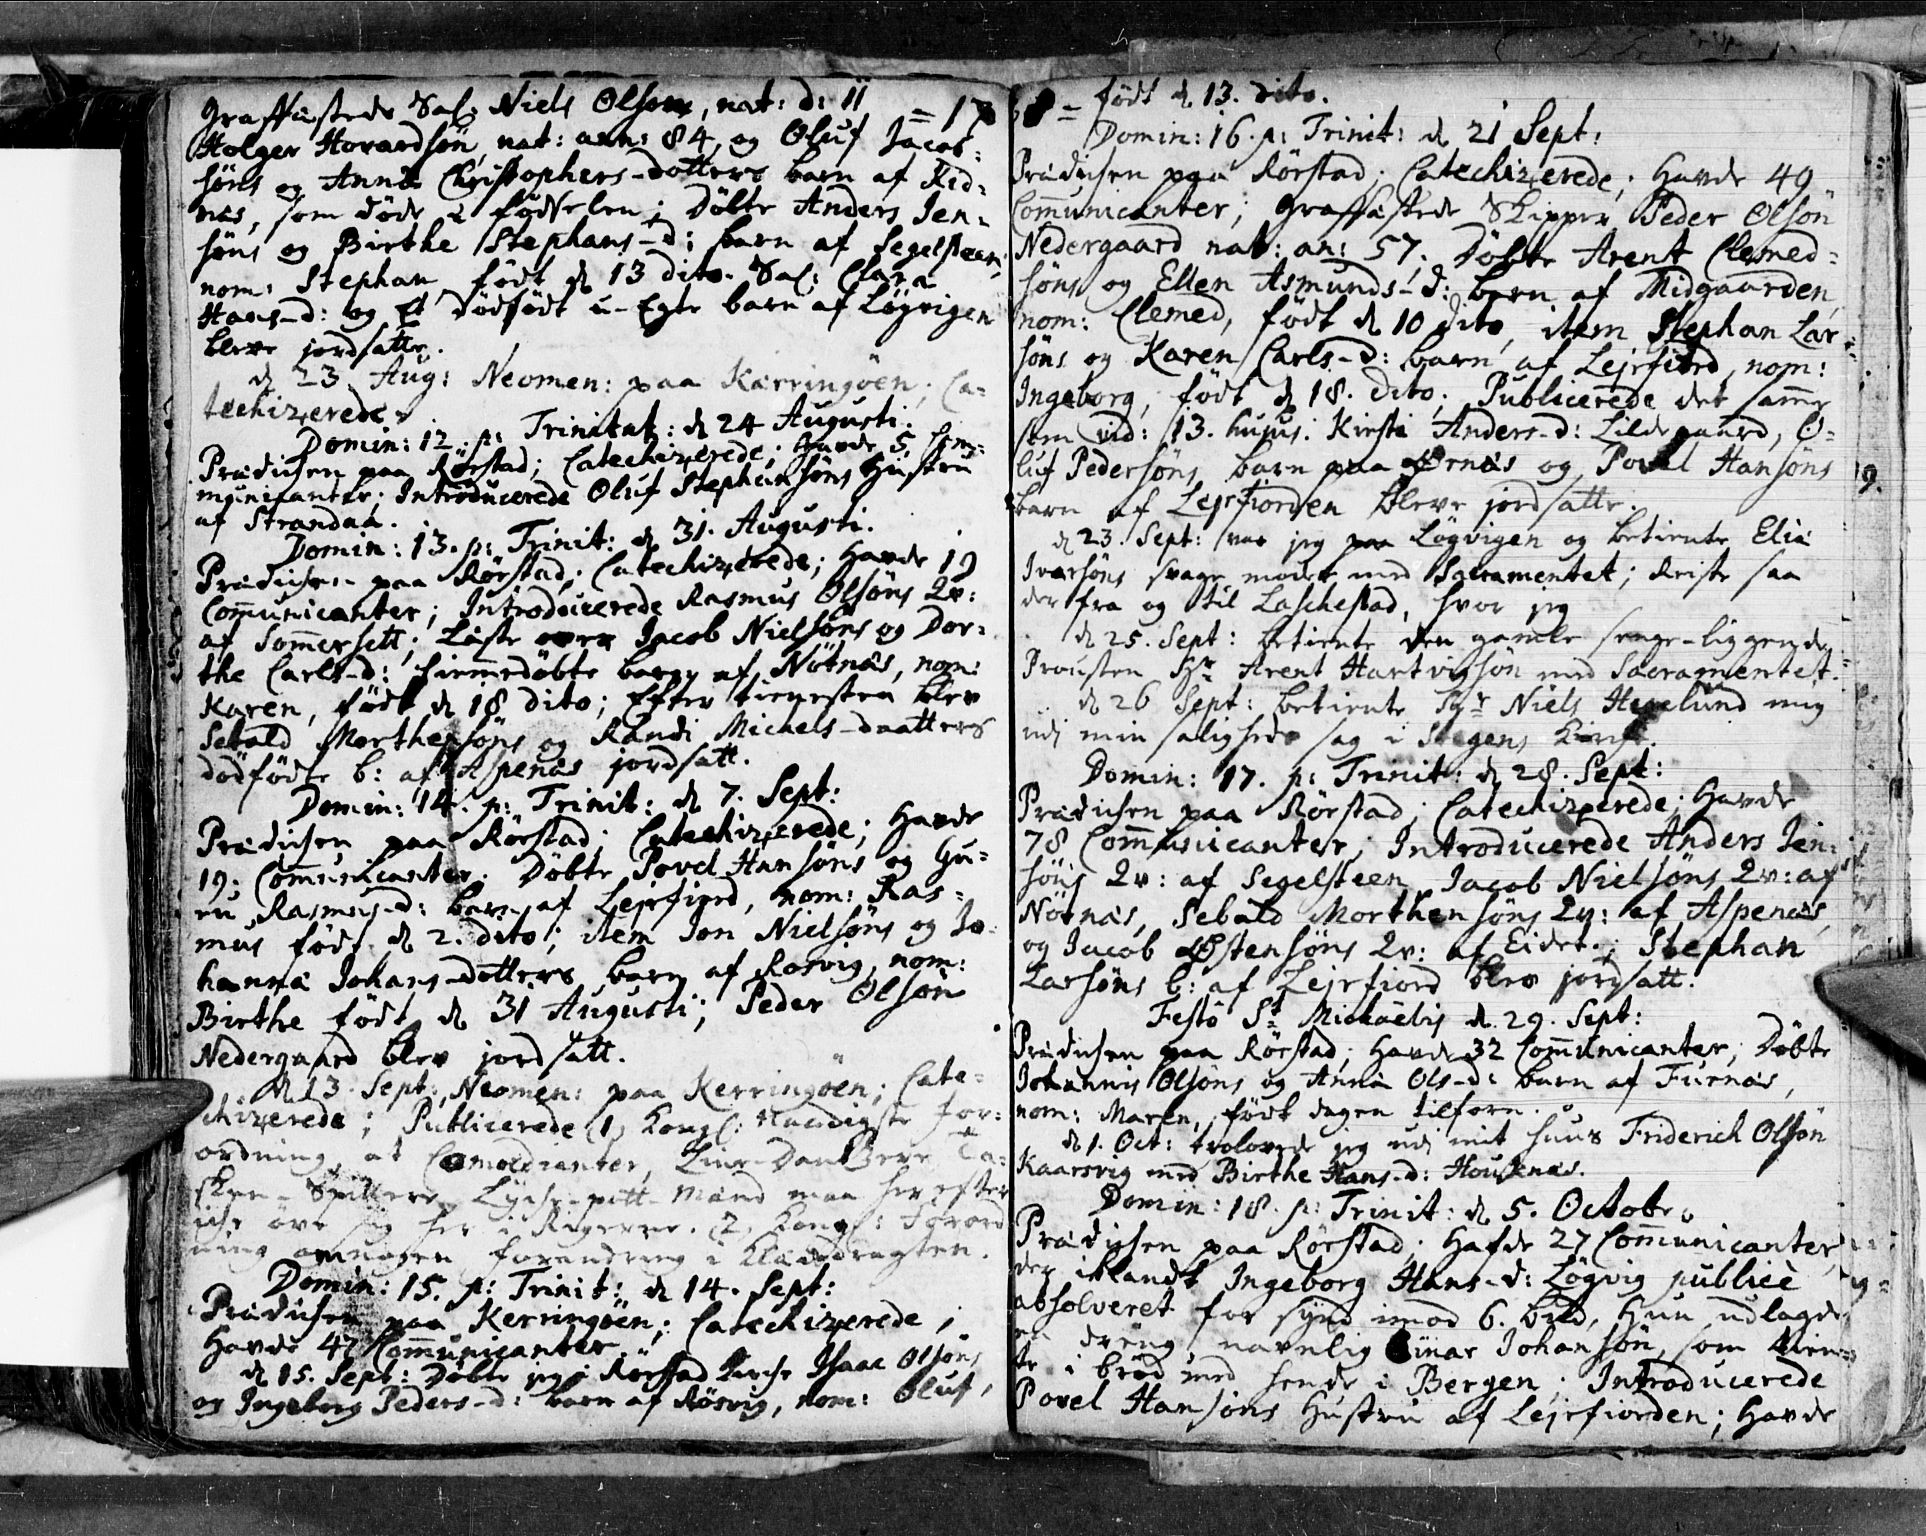 Graffæstede Sal: Niels Olsøn, nat: d: 11
= 17
Holger Hovardsøn, nat: ann: 84, og Oluf Jacob=
søns og Anna Christophers-dotters barn af Kid=
næs, som døde i fødselen; Døbte Anders Jen=
søns og Birthe Stephans-d: barn af Segelsteen,
nom: Stephan, født d 13 dito. Sal: Clara
Hans-d: og Et dødfødt u-Egte barn af Løgvigen
bleve jordsatte.
d 23 Aug: Neomen: paa Kærringøen; Ca-
techizerede.
Domin: 12. p: Trinitat: d 24 Augusti.
Prædichen paa Rørstad; Catechizerede; Havde 5 Com=
municanter; Introducerede Oluf Stephansøns Hustru
af Strandaa.
Domin: 13. p: Trinit: d 31. Augusti.
Prædichen paa Rørstad; Catechizerede; Havde 19
Communicanter; Introducerede Rasmus Olsøns Qv:
af Sommersett; Læste over Jacob Nielsøns og Dor=
the Carls-d: hiemmedøbte barn af Nøtnæs, nom:
Karen, født d 18 dito; Efter tienesten blev
Sebald Morthensøns og Randi Michels-daatters
dødfødte b: af Aspenæs jordsatt.
Domin: 14. p: Trinit: d 7. Sept:
Prædichen paa Rørstad; Catechizerede; Havde
19; Communicanter. Døbte Povel Hansøns og Gu=
ru Rasmus-d: barn af Lejrfiord, nom: Ras=
mus født d 2. dito; item Jon Nielsøns og Jo=
hanna Johans-dotters barn af Rosvig, nom:
Birthe født d 31 Augusti; Peder Olsøn
Nedergaard blev jordsatt.
d 13. Sept: Neomen: paa Kerringøen; Cate=
chizerede; Publicerede (1) Kongl: Naadigste For=
ordning, at Comoedianter, Line-Dantzere, Ta=
sken-Spillere, Lyche-pott mænd maa herefter
iche øve sig her i Rigerne. (2) Kongl: Forord
ning om nogen forandring i Klædedragten.
Domin: 15. p: Trinit: d 14. Sept:
Prædichen paa Kerringøen; Catechizerede;
Havde 47 Communicanter.
d 15. Sept: Døbte jeg i Rørstad Kirche Isaac Olsøns
og Ingeborg Peders-d: barn af Røsvig, nom: Oluf,
født d 13. dito.
Domin: 16. p: Trinit: d 21 Sept:
Prædichen paa Rørstad; Catechizerede; Havde 49
Communicanter; Graffæstede Skipper Peder Olsøn
Nedergaard nat: an: 57; Døbte Arent Clemed=
søns og Ellen Asmunds-d: barn af Midgaarden,
nom: Clemed, født d 10 dito, item Stephan Lar=
søns og Karen Carls-d: barn af Lejrfiord, nom:
Ingeborg, født d 18. dito; Publicerede det samme
som vid: 13. hujus. Kirsti Anders-d: Lildegaard, O=
luf Pedersøns barn paa Ørnæs og Povel Hansøns
barn af Lejrfiorden bleve jordsatte.
d 23. Sept: var jeg paa Løgvigen og betiente Eliæ
Ivarsøns svage moder med Sacramentet; Reiste saa
der fra og til Laschestad, hvor jeg
d 25. Sept: betiente den gamle senge-liggende
Prousten Hr Arent Hartvigsøn med Sacramentet.
d 26 Sept: betiente Hr Niels Hegelund mig
udi min saligheds sag i Stegens Kirche.
Domin: 17. p: Trinit: d 28. Sept:
Prædichen paa Rørstad; Catechizerede; Havde
78 Communicanter; Introducerede Anders Jen=
søns Qv: af Segelsteen, Jacob Nielsøns Qv: af
Nøtnæs, Sebald Morthensøns Qv: af Aspenæs,
og Jacob Østensøns Qv: af Eidet; Stephan
Larsøns b: af Lejrfiord blev jordsatt.
Festo St Michaelis d. 29. Sept:
Prædichen paa Rørstad; Havde 32 Communicanter; Døbte
Johannis Olsøns og Anna Ols-d: barn af Furnæs,
nom: Maren, født dagen tilforn.
d 1. Oct: trolovede jeg udi mit huus Friderich Olsøn
Kaarsvig med Birthe Hans-d: Housnæs.
Domin: 18. p: Trinit: d 5. Octobr.
Prædichen paa Rørstad; Hafde 27 Communicanter,
der iblandt Ingeborg Hans-d: Løgvig publicè
absolveret for synd imod 6. bud, Hun udlagde
en dreng navnlig Einar Johansøn, som tien=
te i brød med hende i Bergen; Introducerede
Povel Hansøns Hustru af Lejrfiorden; Havde